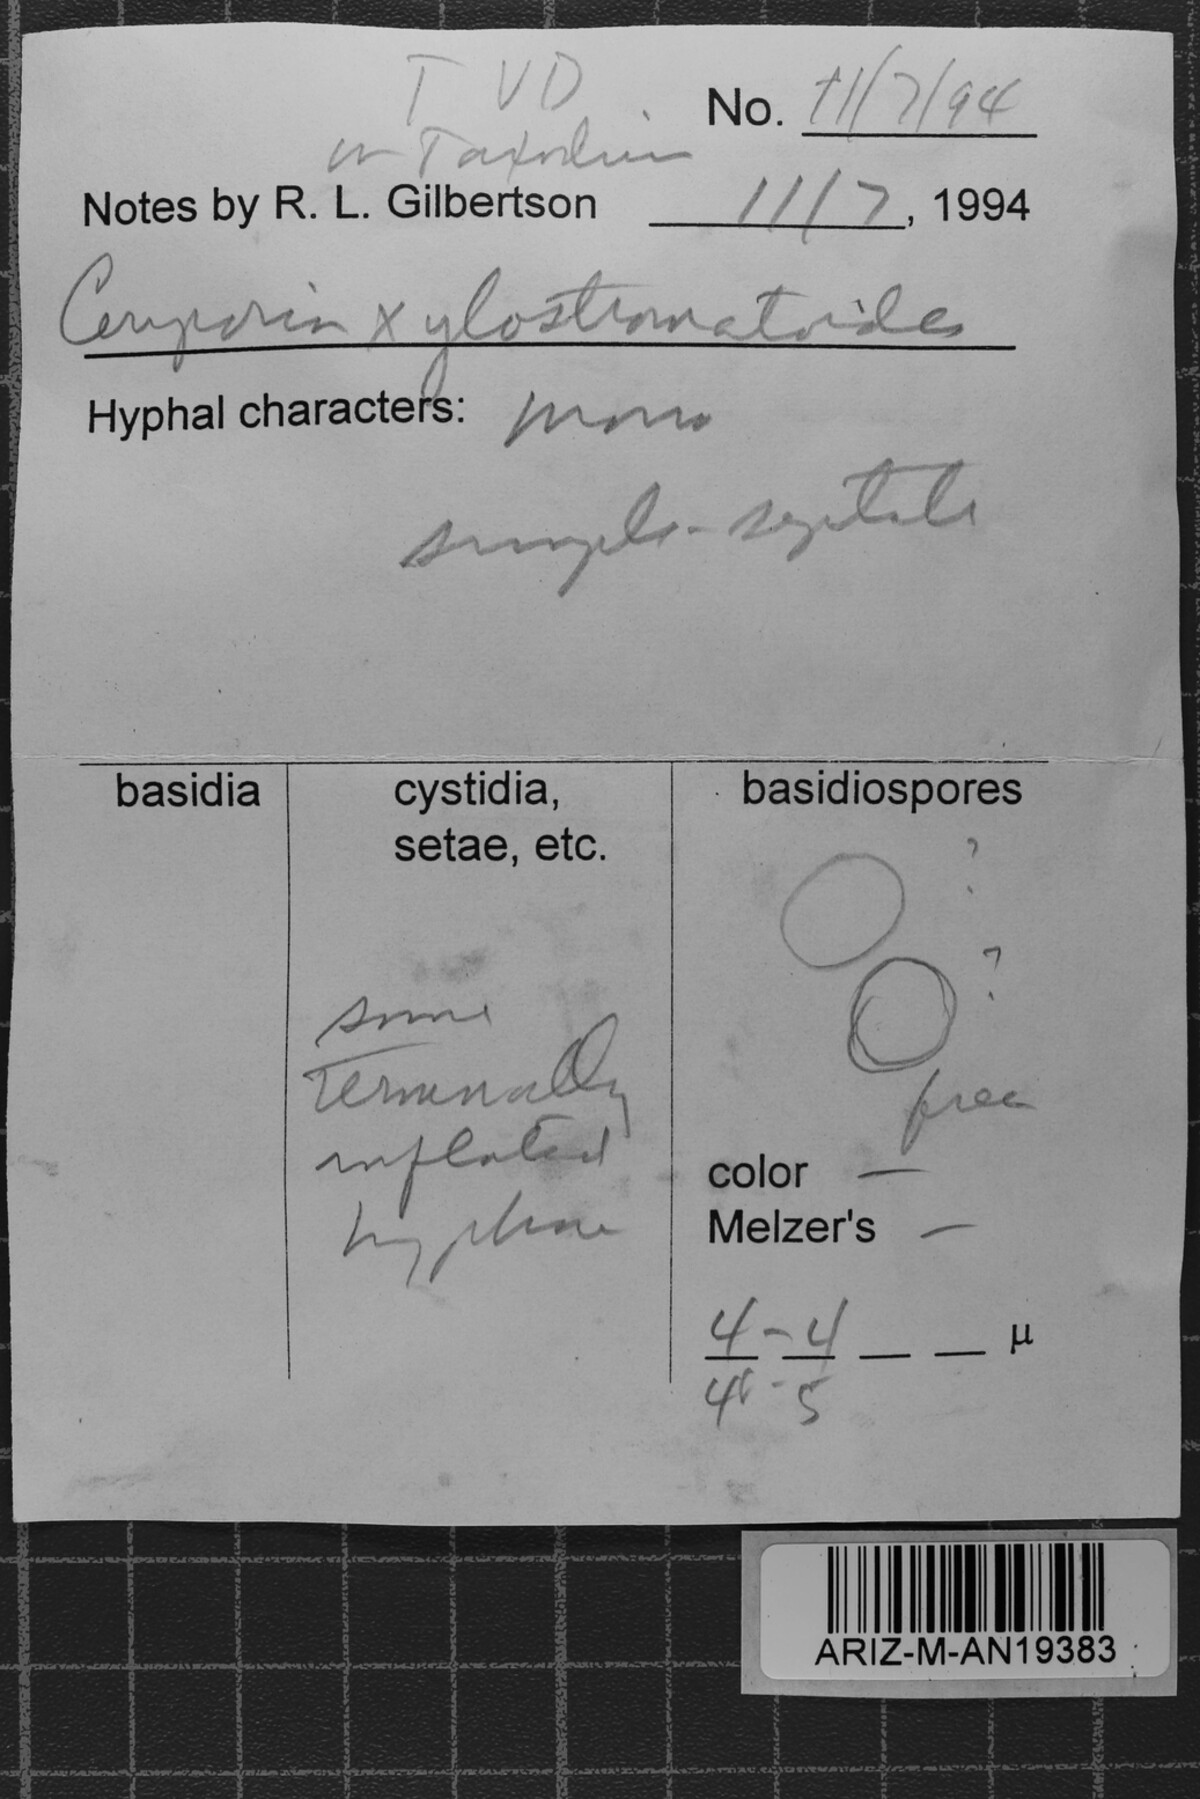 T V D
No. 11/7/94
on Taxodium
Notes by R. L. Gilbertson 11/7, 1994
Ceriporia xylostromatoides
Hyphal characters: mono
simple-septate
basidia
cystidia,
setae, etc.
basidiospores
?
?
some
terminally
inflated
hyphae
free
color —
Melzer's —
4 - 4 µ
4 - 5
ARIZ-M-AN19383